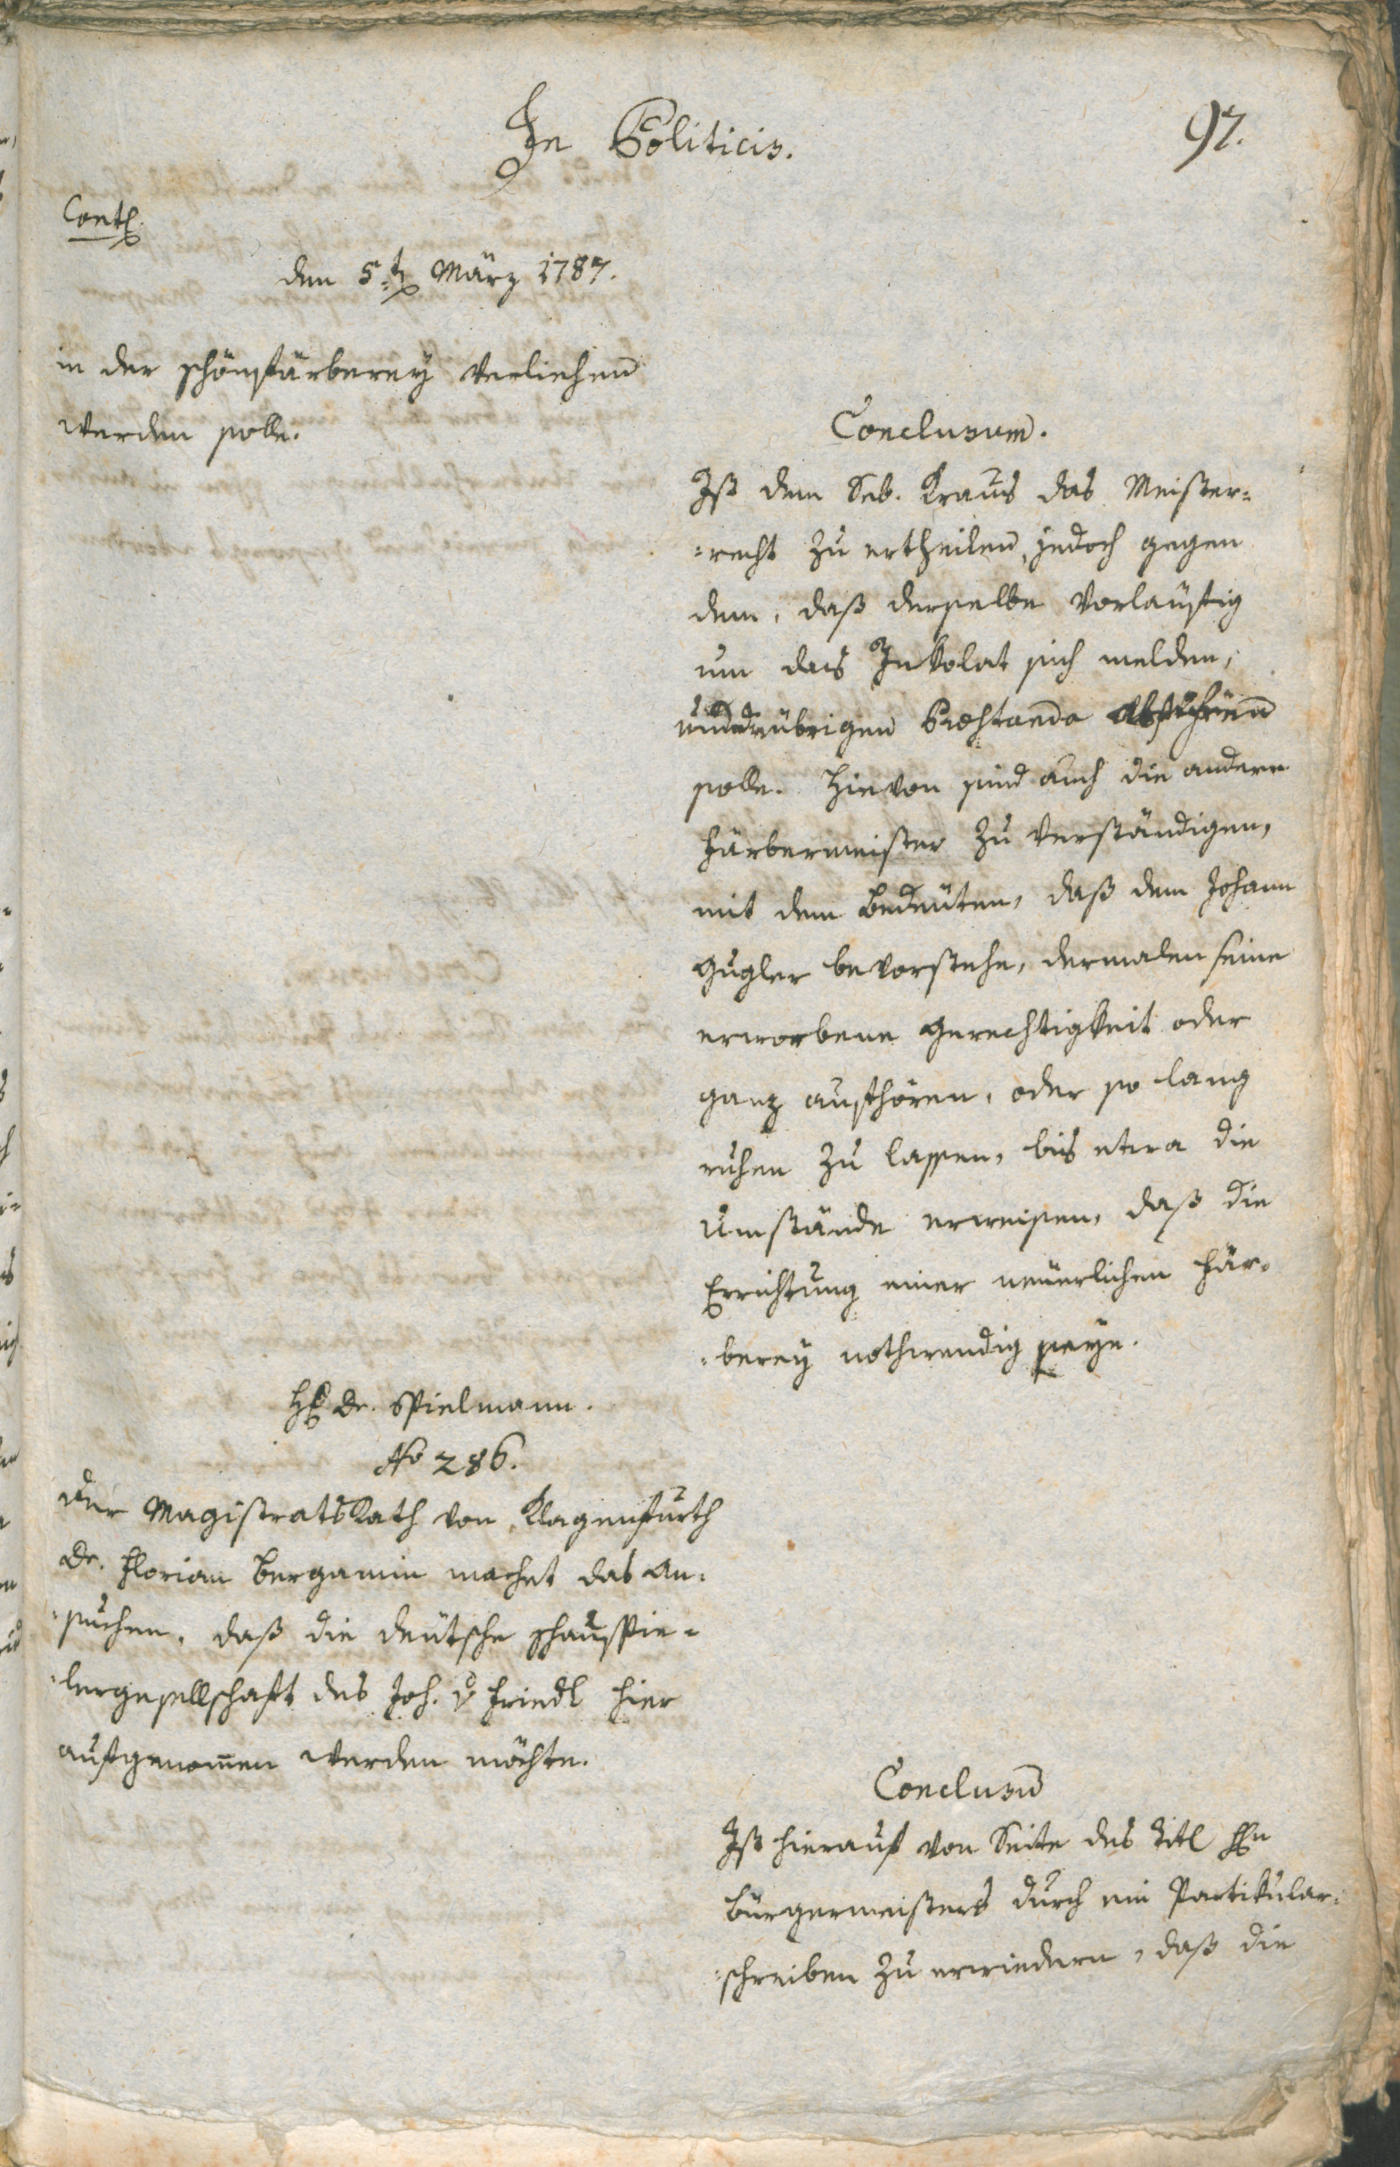 In Politicis.
97.
Cont
den 5t März 1787.
in der schönfärberey verliehen
werden solle.
Conclusum.
Ist dem Seb. Kraus das Meister=
=recht zu ertheilen, jedoch gegen
dem, daß derselbe vorläufig
um das Inkolat sich melden,
und übrigen Præstanda
solle. Hievon sind auch die andern
Färbermeister zu verständigen,
mit dem Bedeuten, daß dem Johann
Gugler bevorstehe, dermalen seine
erworbene Gerechtigkeit oder
ganz aufhören, oder so lang
ruhen zu lassen, bis etwa die
Umstände erweisen, daß die
Errichtung einer neuerlichen Fär=
=berey nothwendig seye.
H Dr. Spielmann.
No 286.
Der MagistratsRath von Klagenfurth
Dr. Florian Bergamin machet das An=
=suchen, daß die deutsche schauspie=
=lergesellschaft des Joh. v Friedl hier
aufgenommen werden möchte.
Conclusum
Ist hierauf von Seite des Titl Hn
Bürgermeisters durch ein Partikular=
=schreiben zu erwiedern, daß die